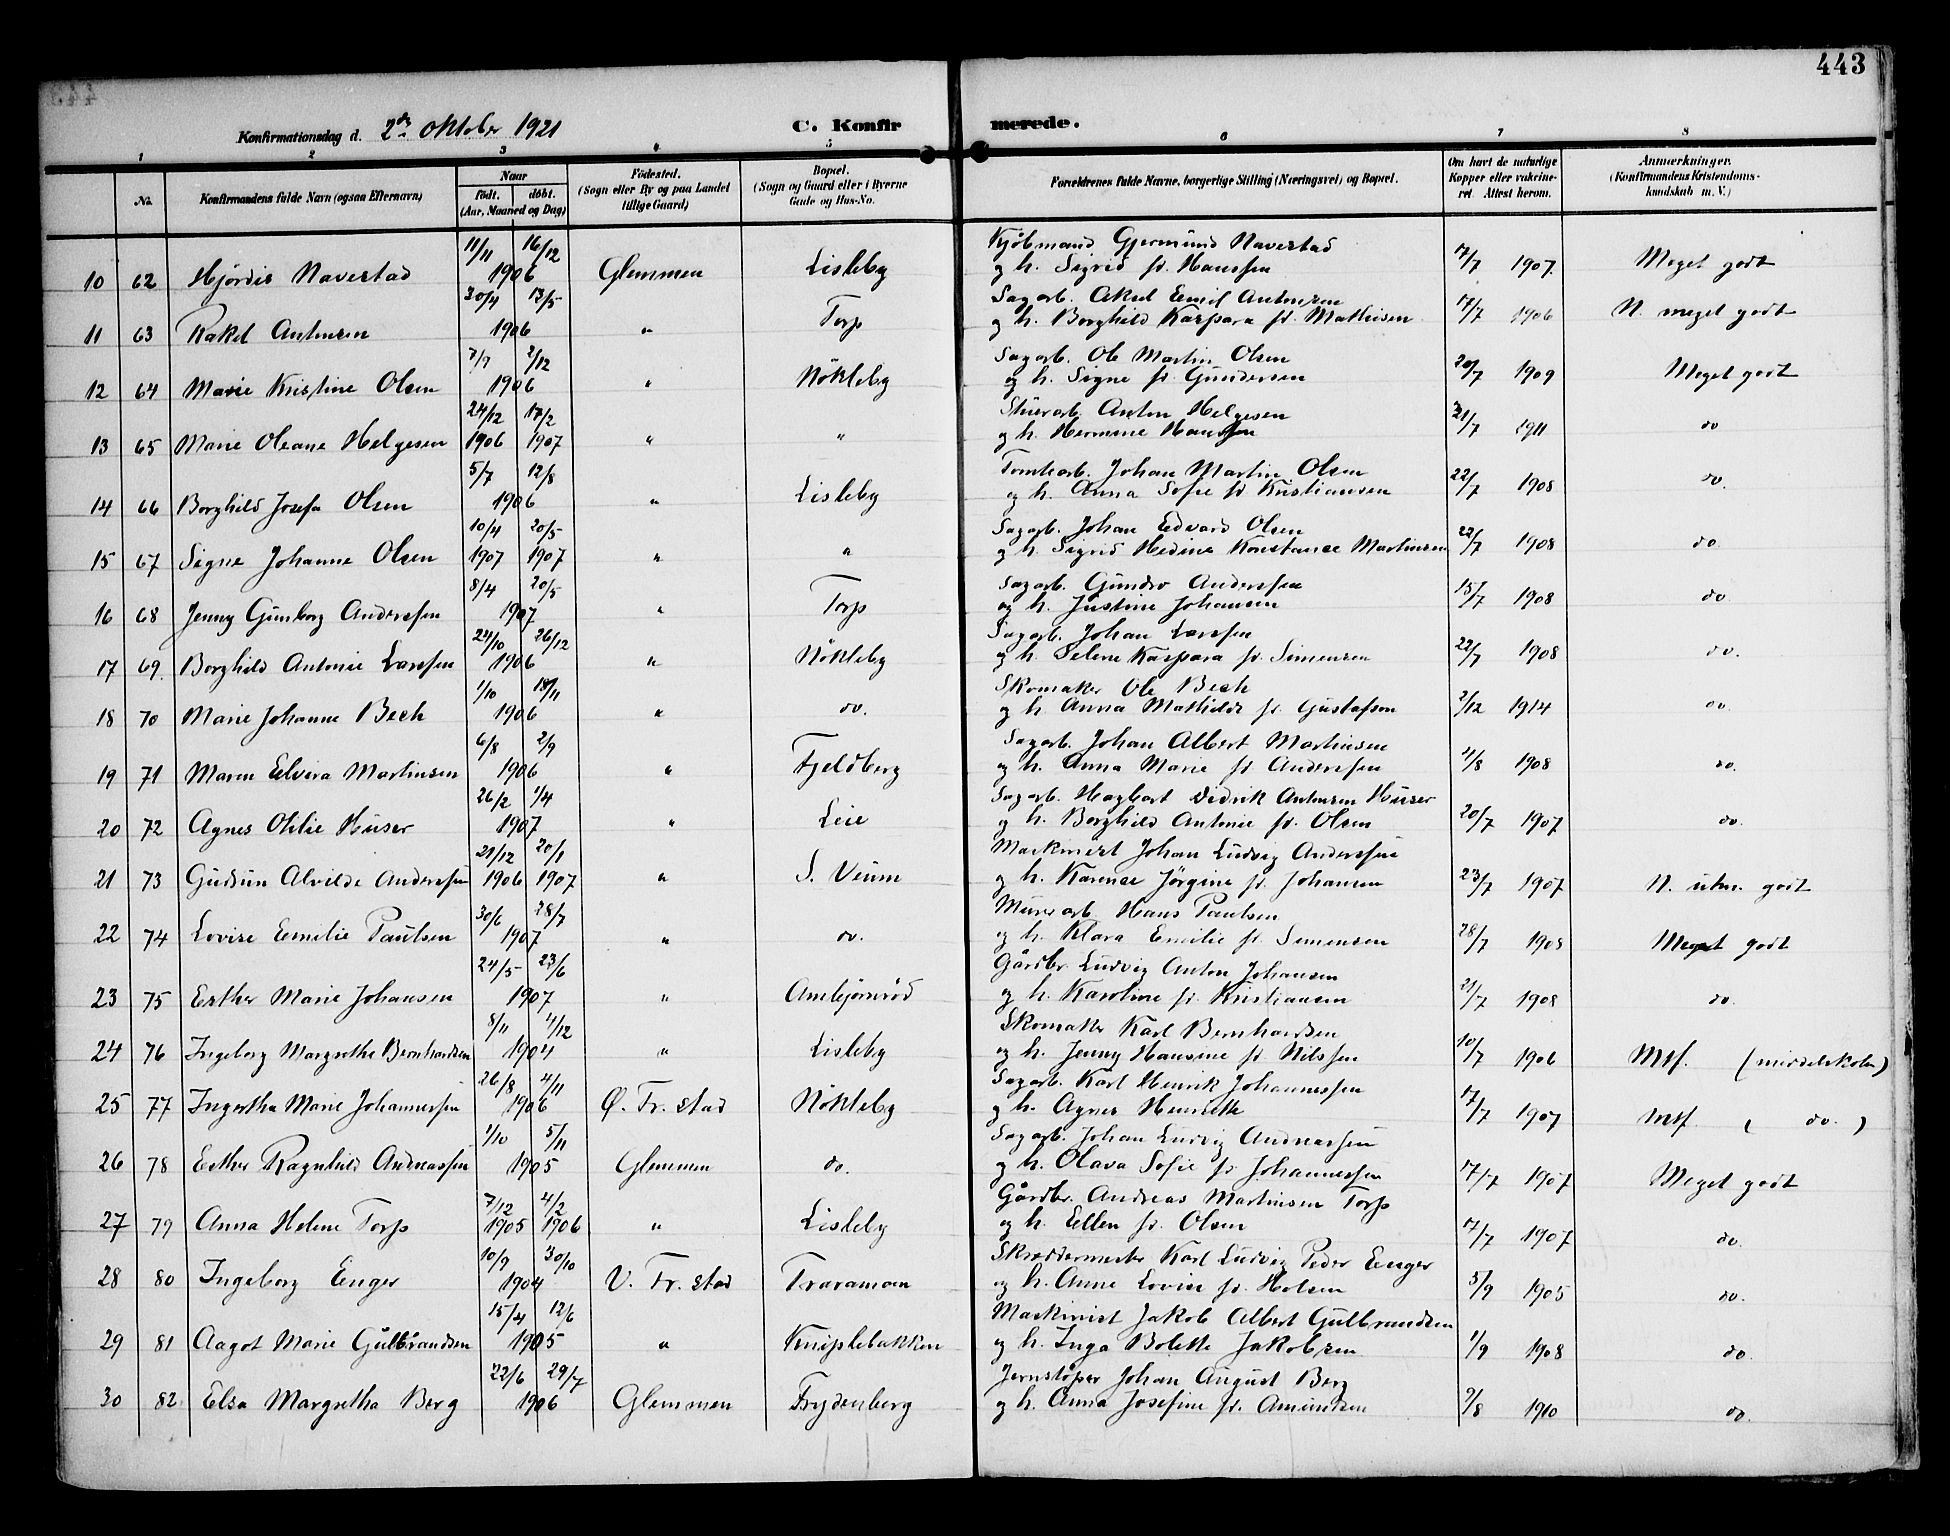 443
Konfirmationsdag d. 2den oktober 1921 C. Konfirmerede.
1 2 3 4 5 6 7 8
No. Konfirmandens fulde Navn (ogsaa Efternavn) Naar født. døbt. (Aar, Maaned og Dag) Fødested. (Sogn eller By og paa Landet tillige Gaard) Bopæl. (Sogn og Gaard eller i Byerne Gade og Hus-No. Forældrenes fulde Navne, borgerlige Stilling (Næringsvei) og Bopæl. Om havt de naturlige Kopper eller vakcineret. Attest herom. Anmærkninger. (Konfirmandens Kristendomskundskab m. V.)
11/11 16/12 Kjøbmand Gjermund Navestad
10 62 Hjørdis Navestad 1906 Glemmen Lisleby og h. Sigrid f. Hanssen 17/7 1907. Meget godt
30/4 13/5 Sagarb. Aksel Emil Antonsen
11 63 Rakel Antonsen 1906 " Torp og h. Borghild Kaspara f. Mathisen 17/7 1906 N. meget godt
7/9 2/12 Sagarb. Ole Martin Olsen
12 64 Marie Kristine Olsen 1906 " Nökleby og h. Signe f. Gundersen 20/7 1909 Meget godt
24/12 17/2 Stuerarb. Anton Helgesen
13 65 Marie Oleane Helgesen 1906 1907 " " og h. Hermine Hanssen 31/7 1911 do
5/7 12/8 Tomtearb. Johan Martin Olsen
14 66 Borghild Josefa Olsen 1906 " Lisleby og h. Anna Sofie f. Kristiansen 22/7 1908 do.
10/4 20/5 Sagarb. Johan Edvard Olsen
15 67 Signe Johanne Olsen 1907 1907 " " og h. Sigrid Hedine Konstance Martinsen 22/7 1908 do
8/4 20/5 Sagarb. Gundro Anderssen
16 68 Jenny Gunborg Anderssen 1907 " Torp og h. Justine Johansen 15/7 1908 do
24/10 26/12 Sagarb. Johan Larssen
17 69. Borghild Antonie Larssen 1906 " Nökleby og h. Selene Kaspara f. Simensen 22/7 1908 do.
1/10 18/11 Skomaker Ole Bech
18 70 Marie Johanne Bech 1906 " do. og h. Anna Mathilde f. Gustafson 2/12 1914 do.
6/8 2/9 Sagarb. Johan Albert Martinsen
19 71 Maren Elvira Martinsen 1906 " Fjeldberg og h. Anna Marie f. Anderssen 4/8 1908 do.
26/2 1/4 Sagarb. Hagbart Didrik Antonsen Huser
20 72 Agnes Otilie Huser 1907 " Leie og h. Borghild Antonie f. Olsen 20/7 1907 do.
21/12 20/1 Maskinist Johan Ludvig Anderssen
21 73 Gudrun Alvilde Anderssen 1906 1907 " S. Veum og h. Karense Jörgine f. Johansen 23/7 1907 N. utm. godt
30/6 28/7 Murerarb. Hans Paulsen
22 74 Lovise Emilie Paulsen 1907 " do. og h. Klara Emilie f. Simensen 28/7 1908 Meget godt
24/5 23/6 Gårdbr. Ludvig Anton Johansen
23 75 Esther Marie Johansen 1907 " Ambjörnröd og h. Karoline f. Kristiansen 21/7 1908 do.
8/11 4/12 Skomaker Karl Bernhardsen
24 76 Ingeborg Margrethe Bernhardsen 1904 " Lisleby og h. Jenny Hansine f. Nilssen 10/7 1906 Mtf. (middelskolen)
26/8 4/11 Sagarb. Karl Henrik Johannessen
25 77 Ingertha Marie Johannessen 1906 Ø. Fr. stad Nökleby og h. Agnes Henriette 17/7 1907 Mtf. ( do. )
1/10 5/11 Sagarb. Johan Ludvig Andreassen
26 78 Esther Ragnhild Andreassen 1905 Glemmen do. og h. Olava Sofie f. Johannessen 17/7 1907 Meget godt
7/12 4/2 Gårdbr. Andreas Martinsen Torp
27 79 Anna Helene Torp 1905 1906 " Lisleby og h. Ellen f. Olsen 17/7 1907 do.
10/9 30/10 Skreddermester Karl Ludvig Peder Enger
28 80 Ingeborg Enger 1904 V. Fr. stad Traramoen og h. Anne Lovise f. Holsen 5/9 1905 do.
15/4 12/6 Maskinist Jakob Albert Gulbrandsen
29 81 Aagot Marie Gulbrandsen 1905 " Kniplebakken og h. Inga Bolette Jakobsen 1/9 1908 do.
22/6 29/7 Jernstöper Johan August Berg
30 82 Elsa Margretha Berg 1906 Glemmen Frydenberg og h. Anna Josefine f. Amundsen 9/8 1910 do.